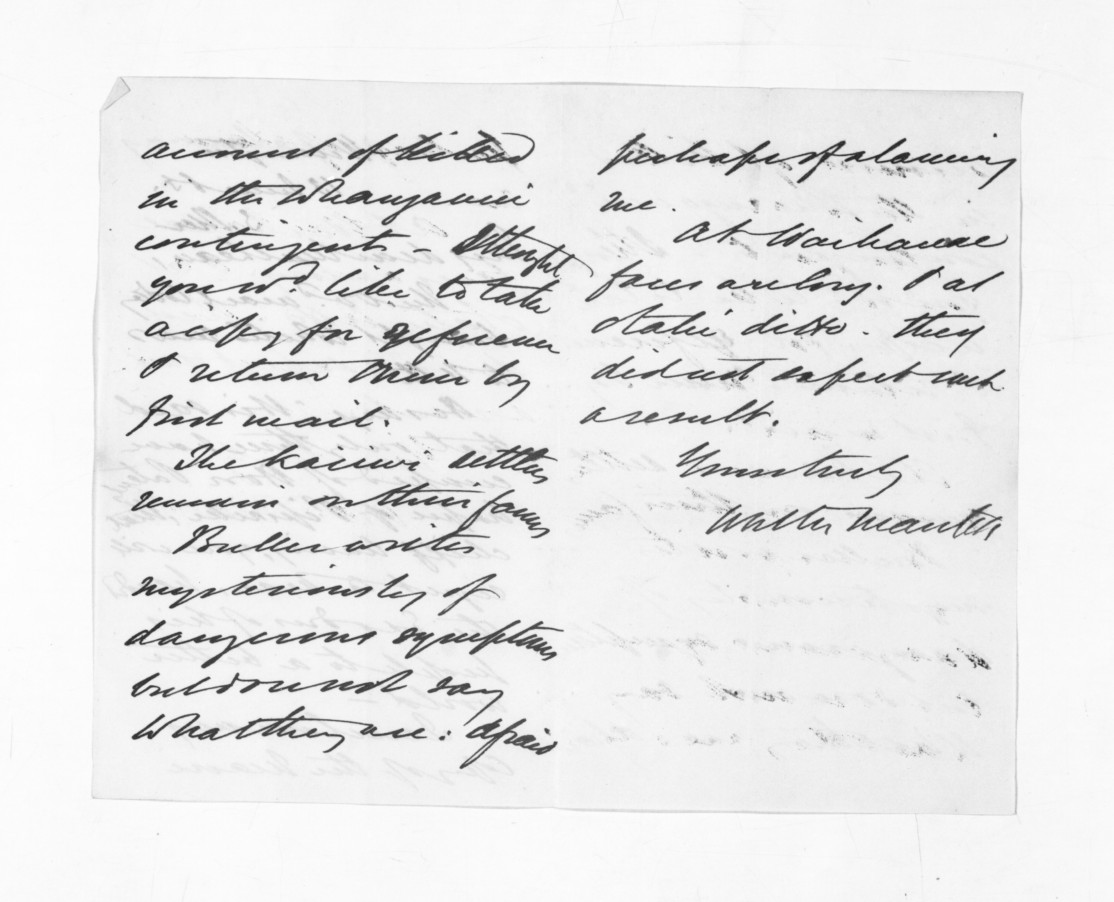 account of killed
in the Whanganui
contingent - I thought
you wd. like to take
a copy for reference
I return them by
first mail.
The Kaiiwi settlers
remain on their farms
Buller writes
mysteriously of
dangerous symptoms
but does not say
what they are: afraid
perhaps of alarming
me.
At Waikanae
faces are long. & at
Otaki ditto. they
did not expect such
a result.
Yours truly
Walter Mantell